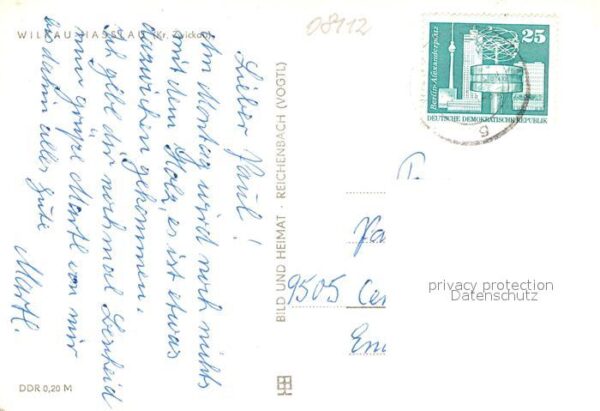 WILKAU-HASSLAU (Kr. Zwickau)
08112
Lieber Paul!
Am Montag wird noch nichts
mit dem Holz, es ist etwas
dazwischen gekommen.
Ich gebe dir nochmal Bescheid
nun grüße Martl von mir
bis dahin alles Gute
Martl.
DDR 0,20 M
BILD UND HEIMAT · REICHENBACH (VOGTL)
25
Berlin-Alexanderplatz
DEUTSCHE DEMOKRATISCHE REPUBLIK
9505
privacy protection
Datenschutz